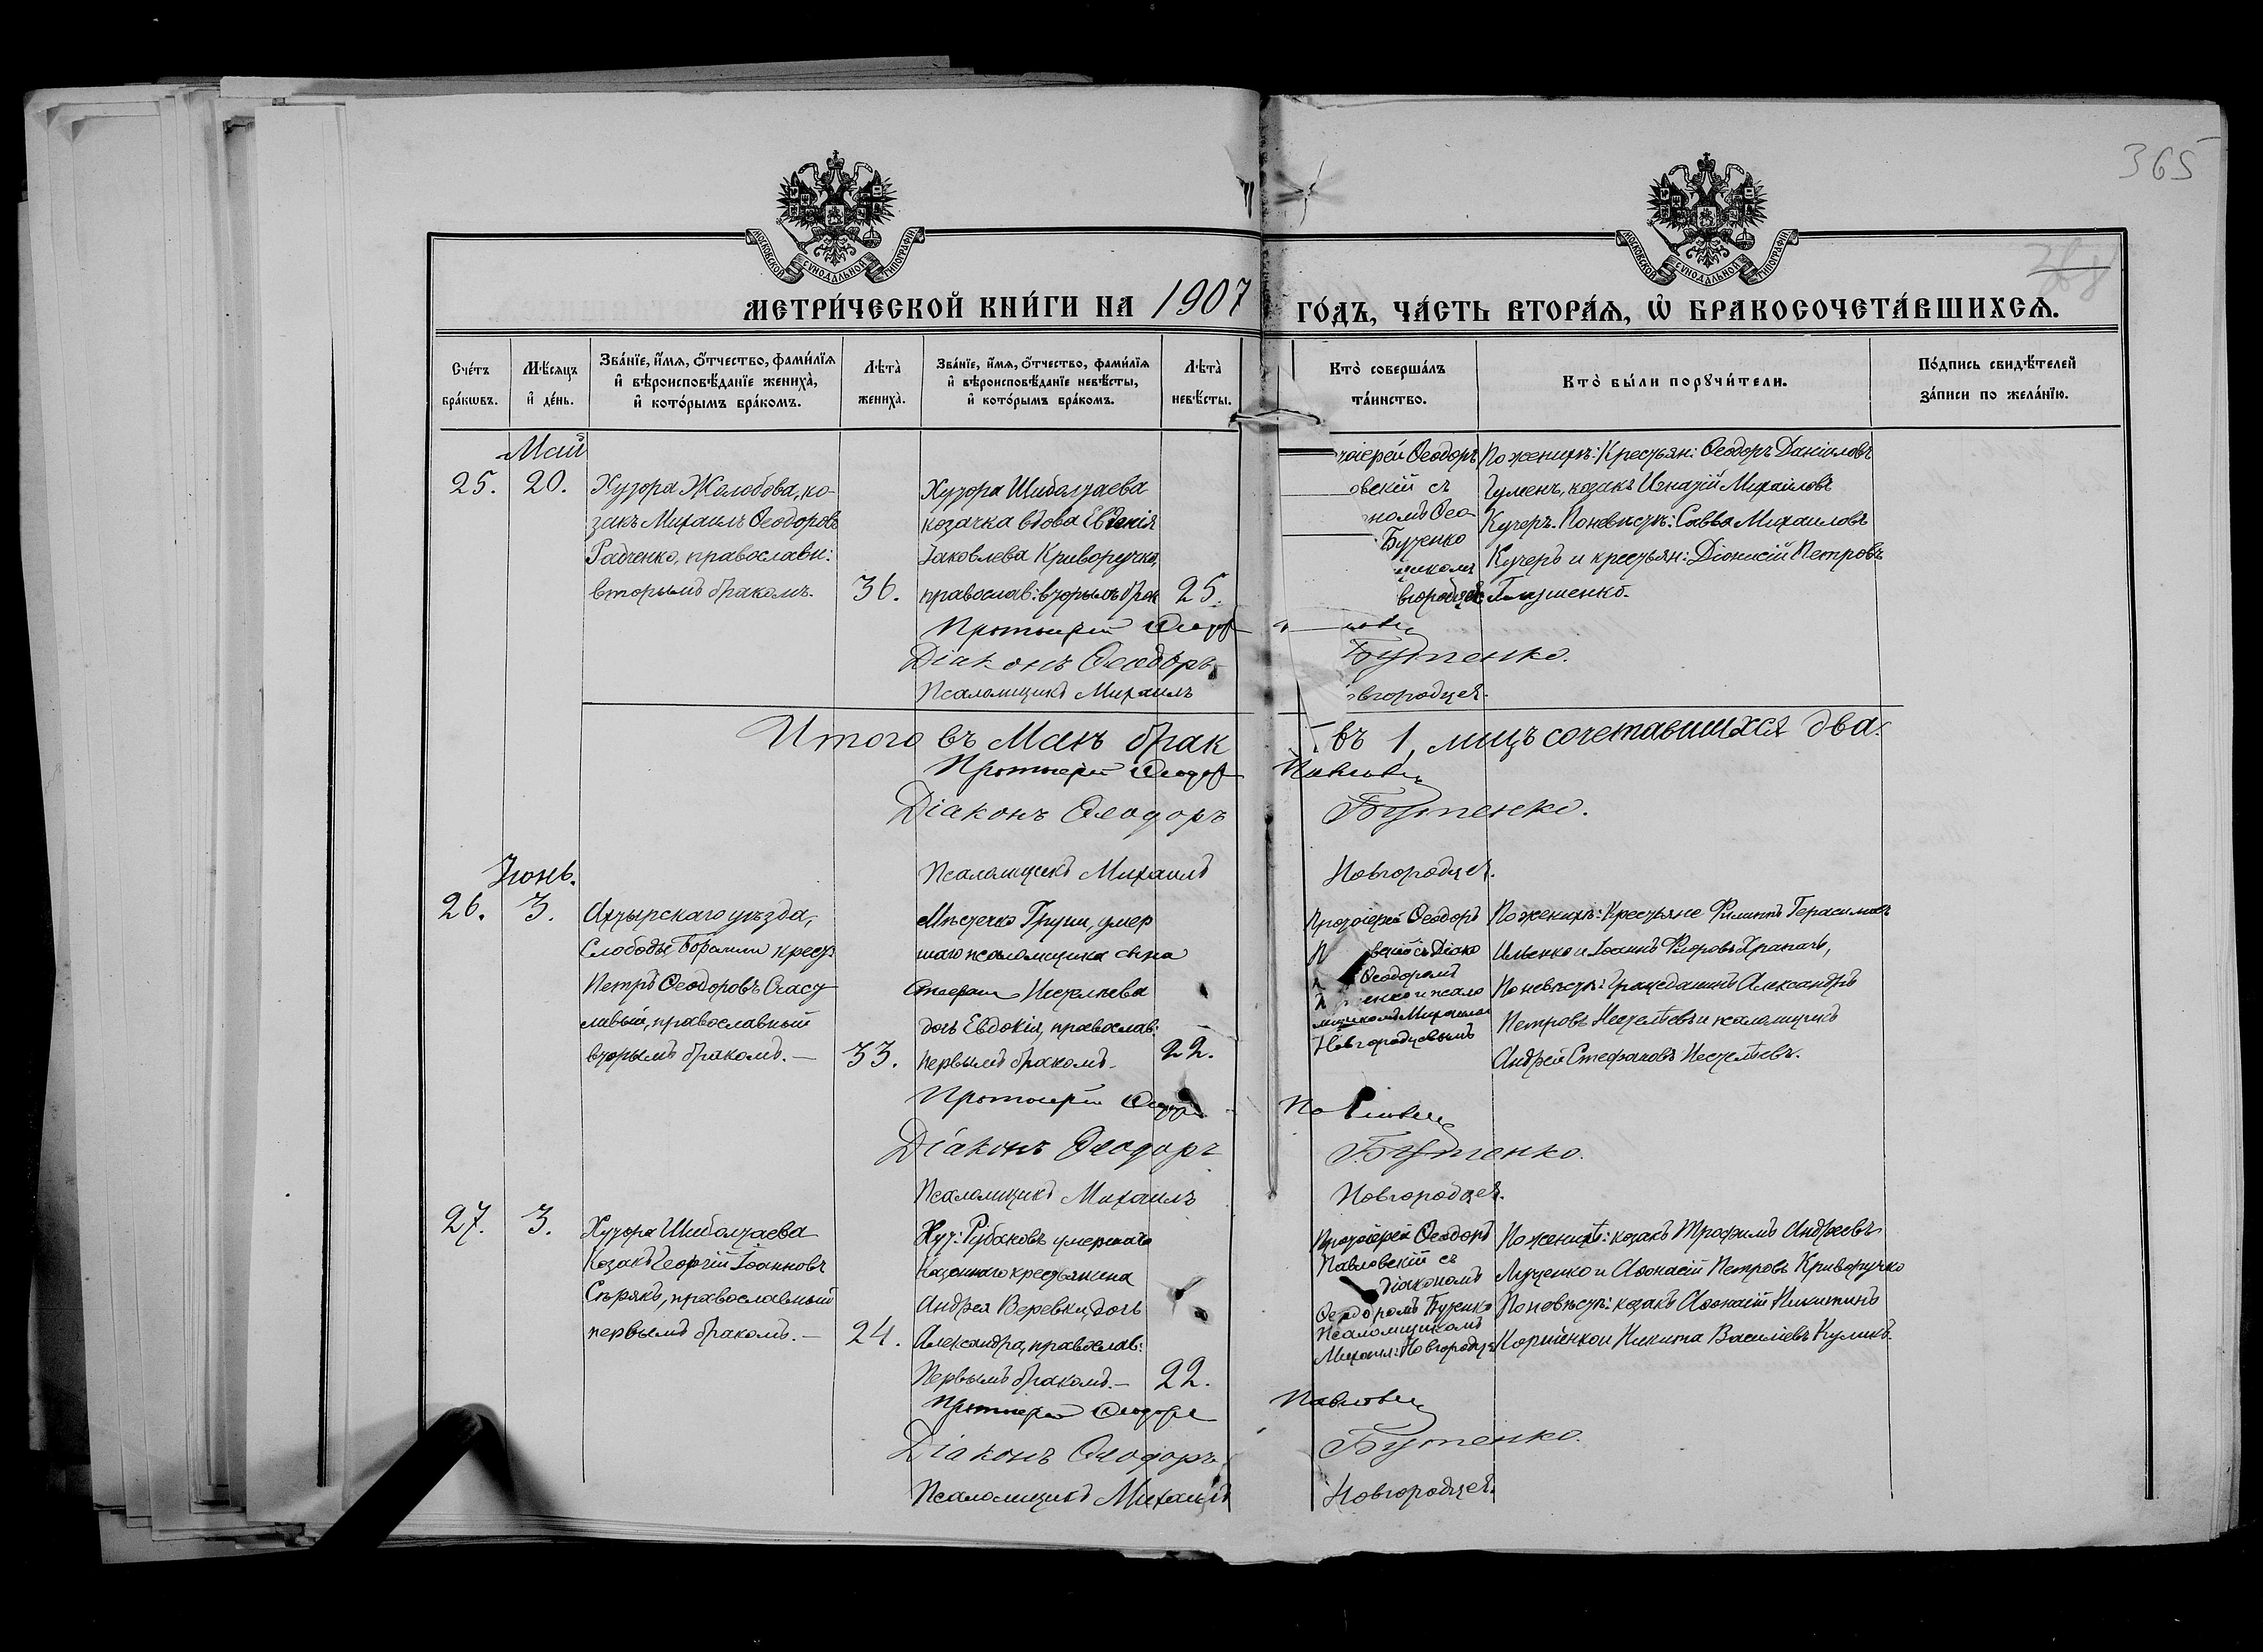 365
МОСКОВСКОЙ СѴНОДАЛЬНОЙ ТИПОГРАФІИ
МОСКОВСКОЙ СѴНОДАЛЬНОЙ ТИПОГРАФІИ
МЕТРИ́ЧЕСКОЙ КНИ́ГИ НА 1907 ГО́ДЪ, ЧА́СТЬ ВТОРА́Ѧ, Ѡ БРАКОСОЧЕТА́ВШИХСѦ.
Сче́тъ бра́кѡвъ.
Мѣ́сяцъ и де́нь.
Зва́нїе, и́мя, о́тчество, фами́лїя и вѣроисповѣ́данїе жениха̀, и кото́рымъ бра́комъ.
Лѣта̀ жениха̀.
Зва́нїе, и́мя, о́тчество, фами́лїя и вѣроисповѣ́данїе невѣ́сты, и кото́рымъ бра́комъ.
Лѣта̀ невѣ́сты.
Кто̀ соверша́лъ та́инство.
Кто̀ бы́ли порꙋчи́тели.
По́дпись свидѣ́телей за́писи по жела́нїю.
Май
25. 20.
Хутора Жолобова, ко-
закъ Михаилъ Ѳеодоровъ
Радченко, православн:
вторымъ бракомъ.
36.
Хутора Шиболтаева
козачка вдова Евгенія
Іаковлева Криворучко,
православ: вторымъ брак
25.
Ѳеодоръ
овскій съ
номъ Ѳео
Бутенко
щикомъ
По женихѣ: Крестьян: Ѳеодоръ Даніиловъ
Гуменъ, козакъ Игнатій Михаиловъ
Кучеръ. По невѣстѣ: Савва Михаиловъ
Кучеръ и крестьян: Діонисій Петровъ
Протоіерей Ѳеодоръ
Діаконъ Ѳеодоръ Бутенко.
Псаломщикъ Михаилъ вгородцев.
Итого въ Маѣ браковъ 1, лицъ сочетавшихся два.
Протоіерей Ѳеодоръ Павловскій
Діаконъ Ѳеодоръ Бутенко.
Псаломщикъ Михаилъ Новгородцев.
Іюнь.
26. 3.
Ахтырскаго уѣзда,
Слободы Боромли крест
Петръ Ѳеодоровъ Счаст
ливый, православный
вторымъ бракомъ.—
33.
Мѣстечка Груни, умер
шаго псаломщика сына
Стефана Нестелѣева
дочь Евдокія, православ:
первымъ бракомъ.
22.
Протоіерей Ѳеодоръ
вскій съ Діако
Ѳеодоромъ
енко и псало
мщикомъ Михаиломъ
Новгородцевымъ
По женихѣ: Крестьяне Филиппъ Герасимовъ
Ильенко и Іоаннъ Флоровъ Храпачъ,
По невѣстѣ: Гражданинъ Александръ
Петровъ Нестелѣевъ и псаломщикъ
Андрей Стефановъ Нестелѣевъ.
Протоіерей Ѳеодоръ Павловскій
Діаконъ Ѳеодоръ Бутенко.
Псаломщикъ Михаилъ Новгородцев.
27. 3.
Хутора Шиболтаева
Козакъ Георгій Іоанновъ
Сѣрякъ, православный
первымъ бракомъ.—
24.
Хут: Рубановъ умершаго
Казеннаго крестьянина
Андрея Веревки, дочь
Александра, православ:
Первымъ бракомъ.—
22.
Протоіерей Ѳеодоръ
Павловскій съ
діакономъ
Ѳеодоромъ Бутенко
Псаломщикомъ
Михаил: Новгородце
По женихѣ: козакъ Трофимъ Андреевъ
Луценко и Аѳонасій Петровъ Криворучко
По невѣстѣ: козакъ Аѳонасій Никитинъ
Корніенко и Никита Василіевъ Куликъ.
Протоіерей Ѳеодоръ Павловскій
Діаконъ Ѳеодоръ Бутенко.
Псаломщикъ Михаилъ Новгородцев.